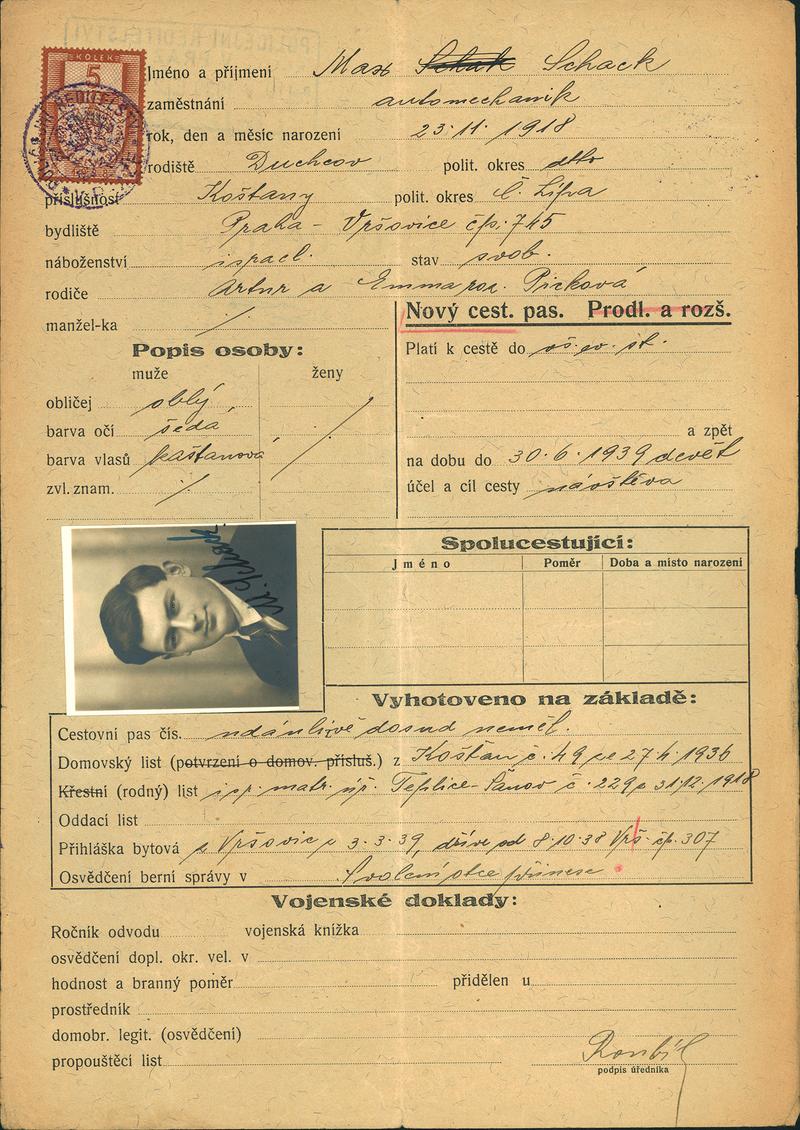 KOLEK
5
Jméno a příjmení Max Schak Schack
zaměstnání automechanik
rok, den a měsíc narození 23.11.1918
rodiště Duchcov polit. okres dtto
příslušnost Košťany polit. okres Č. Lípa
bydliště Praha - Vršovice čp. 745
náboženství israel. stav svob.
rodiče Artur a Emma roz. Picková
manžel-ka /.
Nový cest. pas. Prodl. a rozš.
Popis osoby:
muže ženy
Platí k cestě do vš. ev. st.
obličej oblý
barva očí šedá
a zpět
barva vlasů kaštanová
na dobu do 30.6.1939 devět
zvl. znam. /.
účel a cíl cesty návštěva
M. Schack
Spolucestující:
Jméno Poměr Doba a místo narození
Vyhotoveno na základě:
Cestovní pas čís. údánlivě dosud neměl.
Domovský list (potvrzení o domov. přísluš.) z Košťan č. 49 ze 27.4.1936
Křestní (rodný) list isr. matr. úř. Teplice-Šanov č. 229 z 31.12.1918
Oddací list
Přihláška bytová z Vršovic z 3.3.39, dříve od 8.10.38 Vrš. čp. 307
Osvědčení berní správy v Svolení otce přinese
Vojenské doklady:
Ročník odvodu vojenská knížka
osvědčení dopl. okr. vel. v
hodnost a branný poměr přidělen u
prostředník
domobr. legit. (osvědčení)
propouštěcí list
podpis úředníka